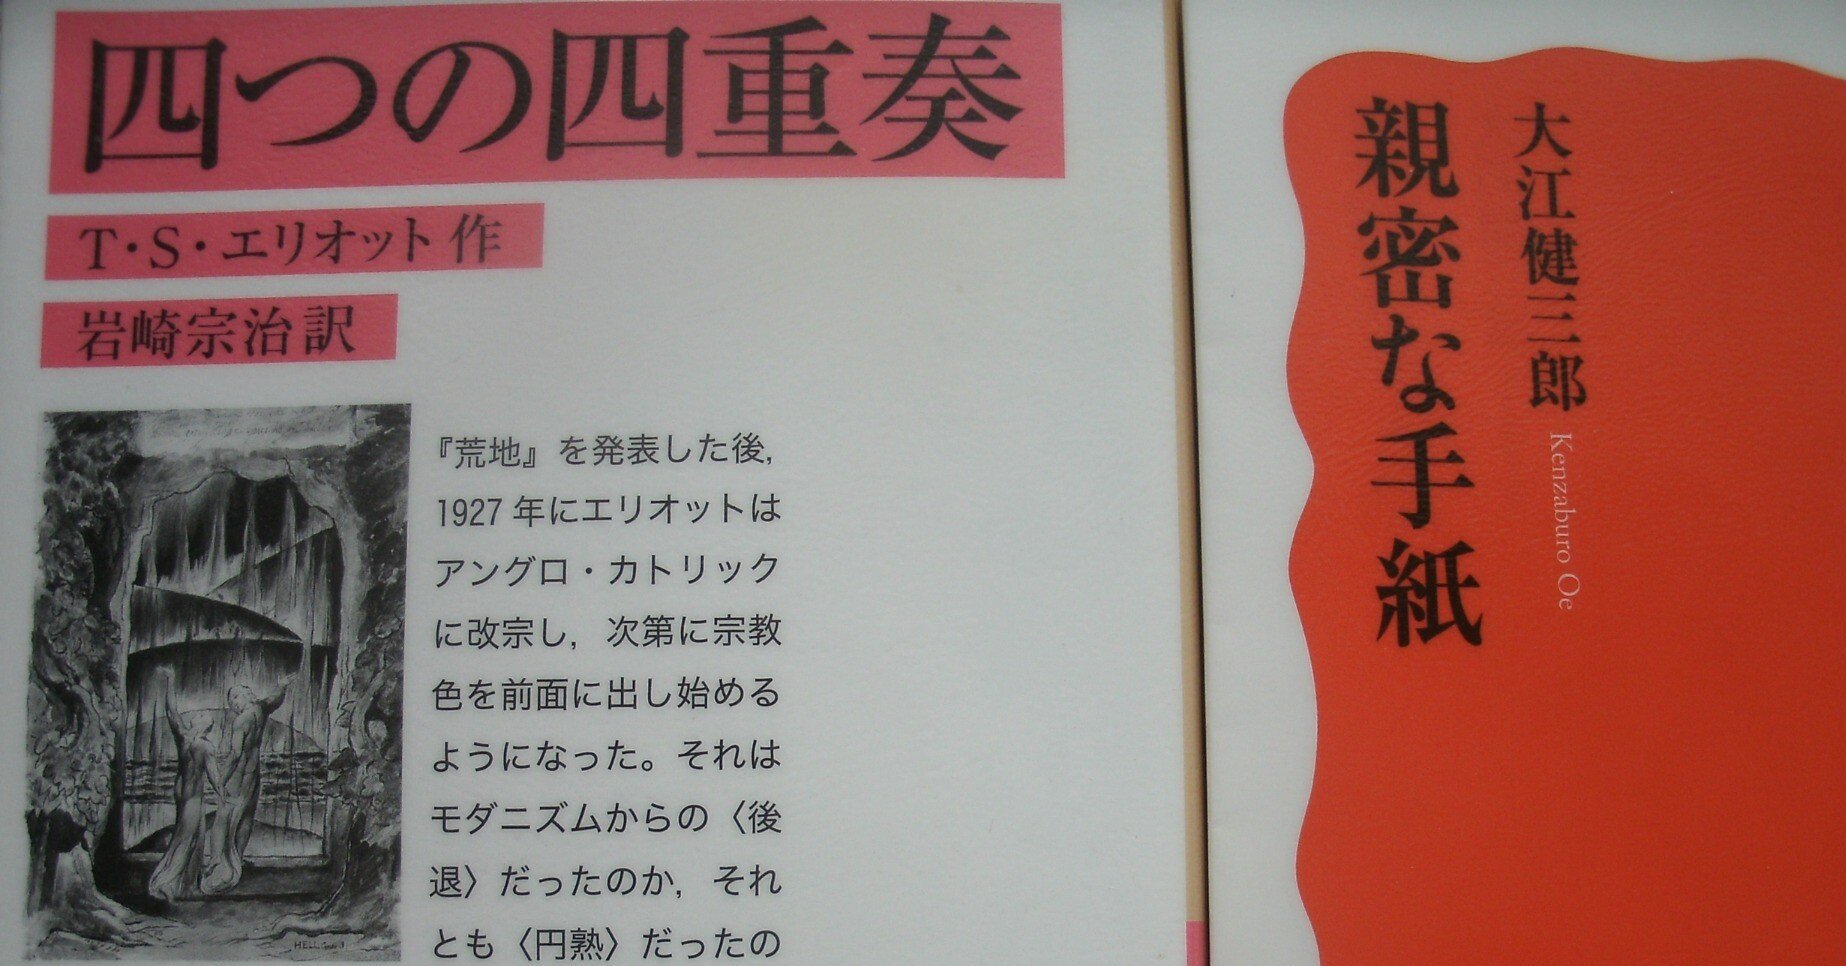 四つの四重奏
T・S・エリオット 作
岩崎宗治訳
『荒地』を発表した後,
1927 年にエリオットは
アングロ・カトリック
に改宗し, 次第に宗教
色を前面に出し始める
ようになった。それは
モダニズムからの〈後
退〉だったのか, それ
とも〈円熟〉だったの
HELL
大江健三郎
Kenzaburo Oe
親密な手紙